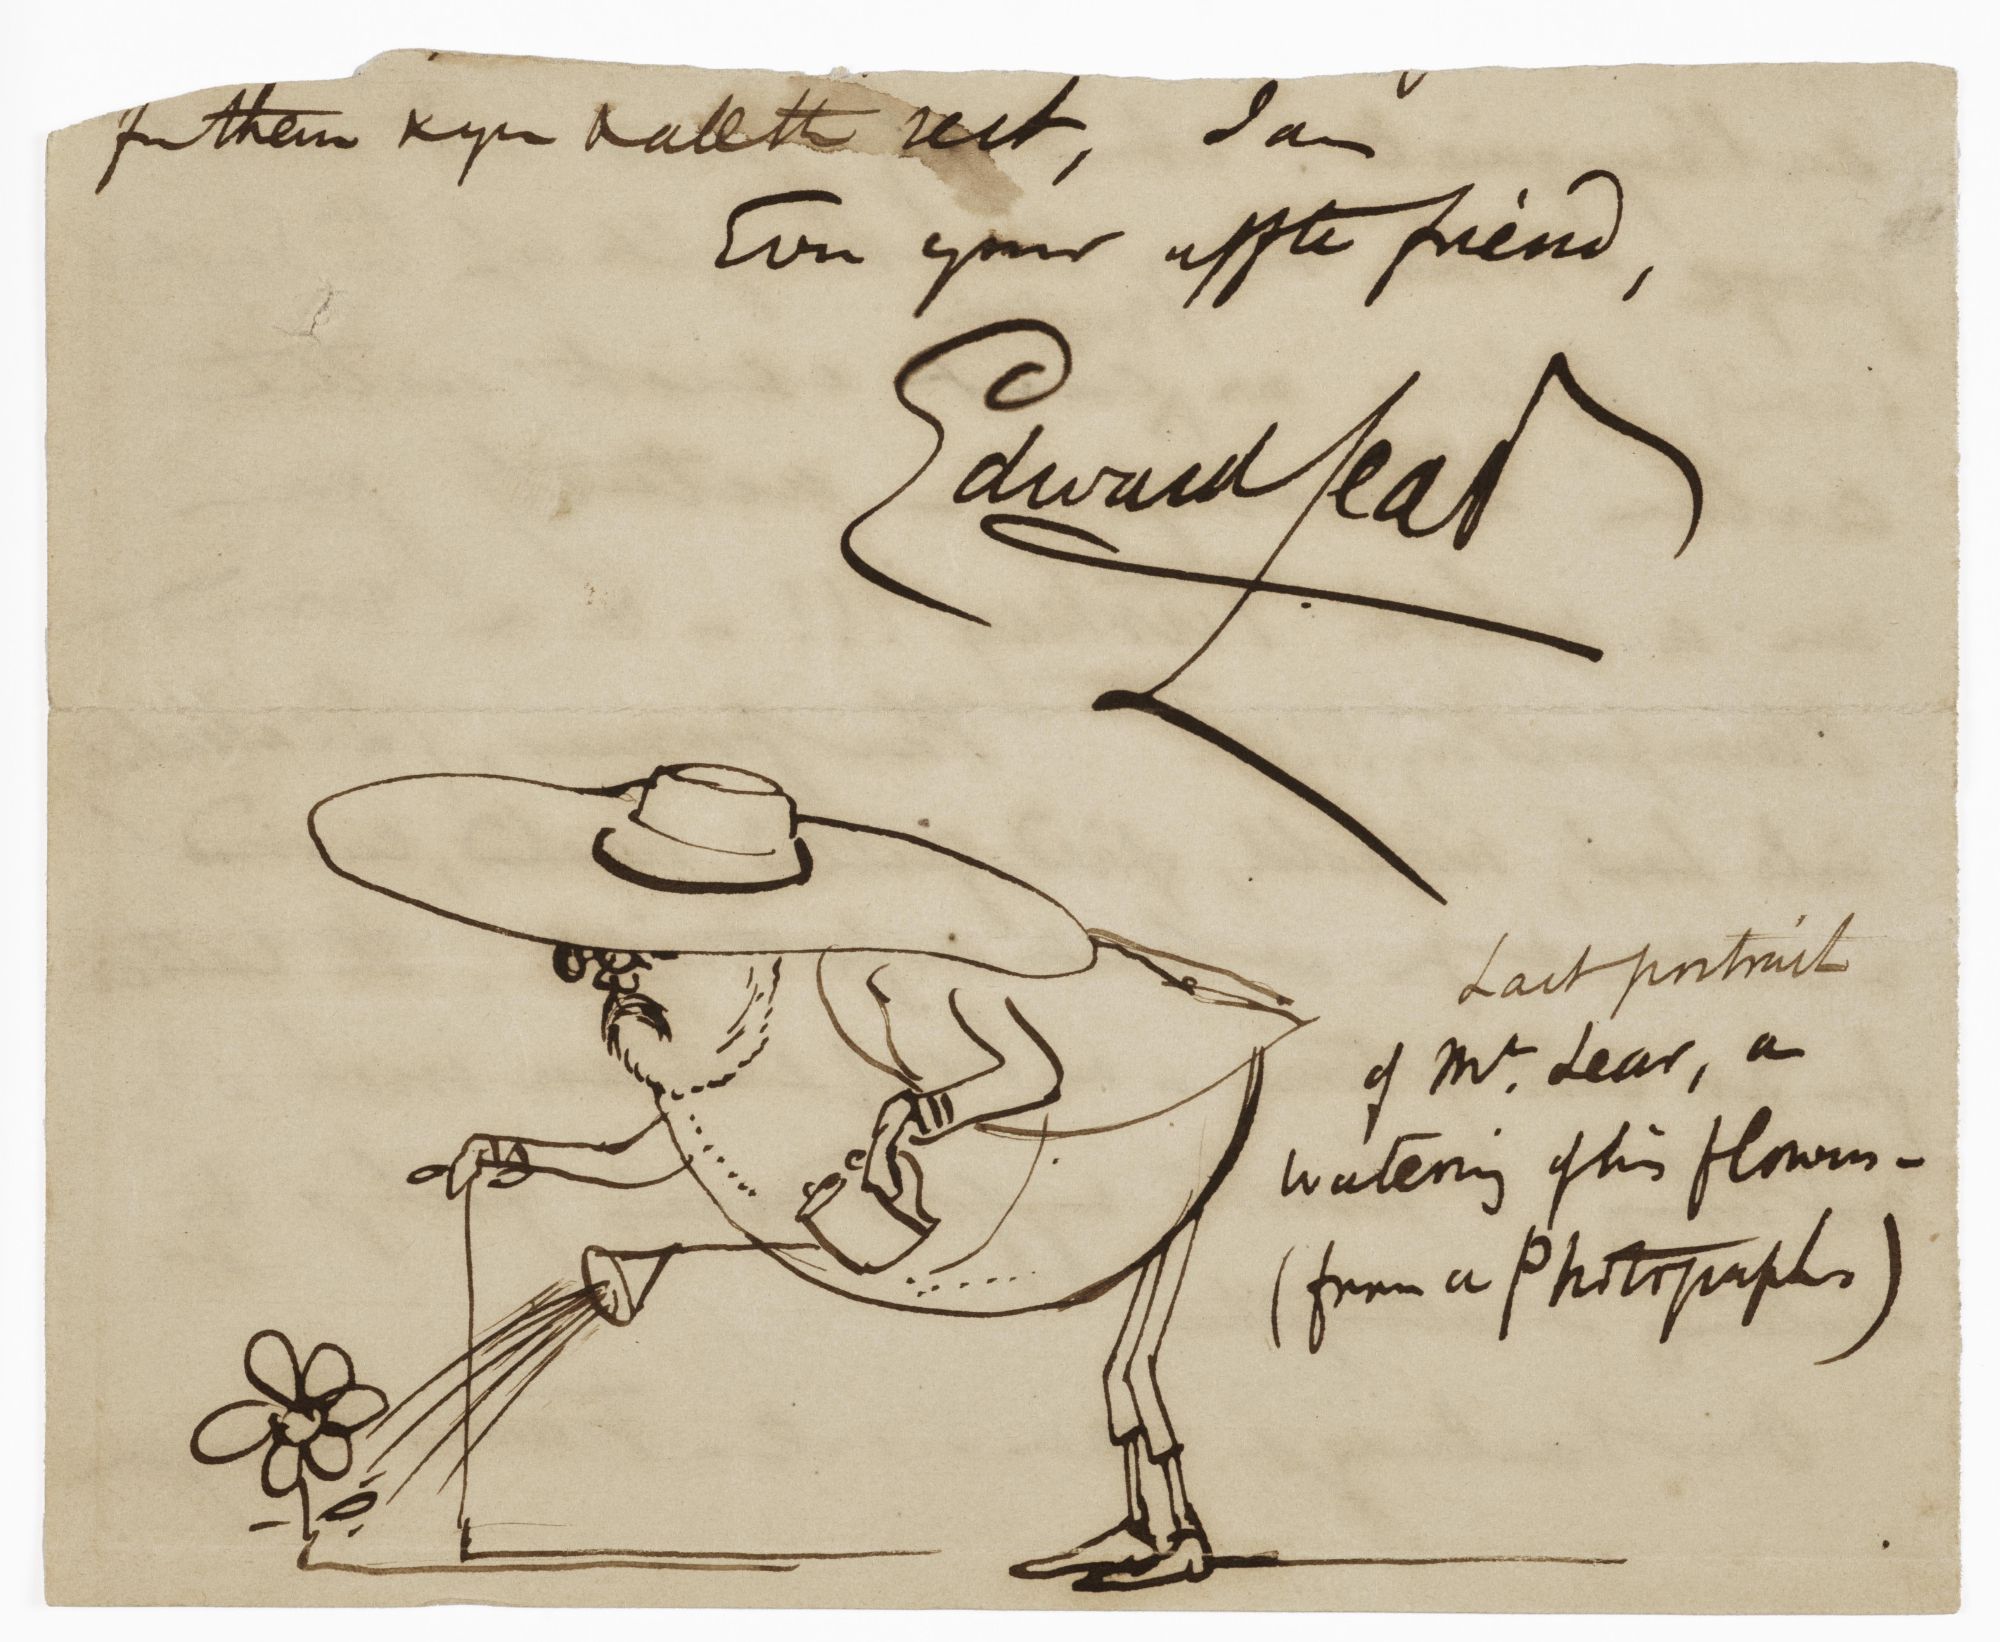 for them & you & all the rest, I am
Ever your affte friend,
Edward Lear
Last portrait
of Mr. Lear, a
watering of his flowers –
(from a Photograph)